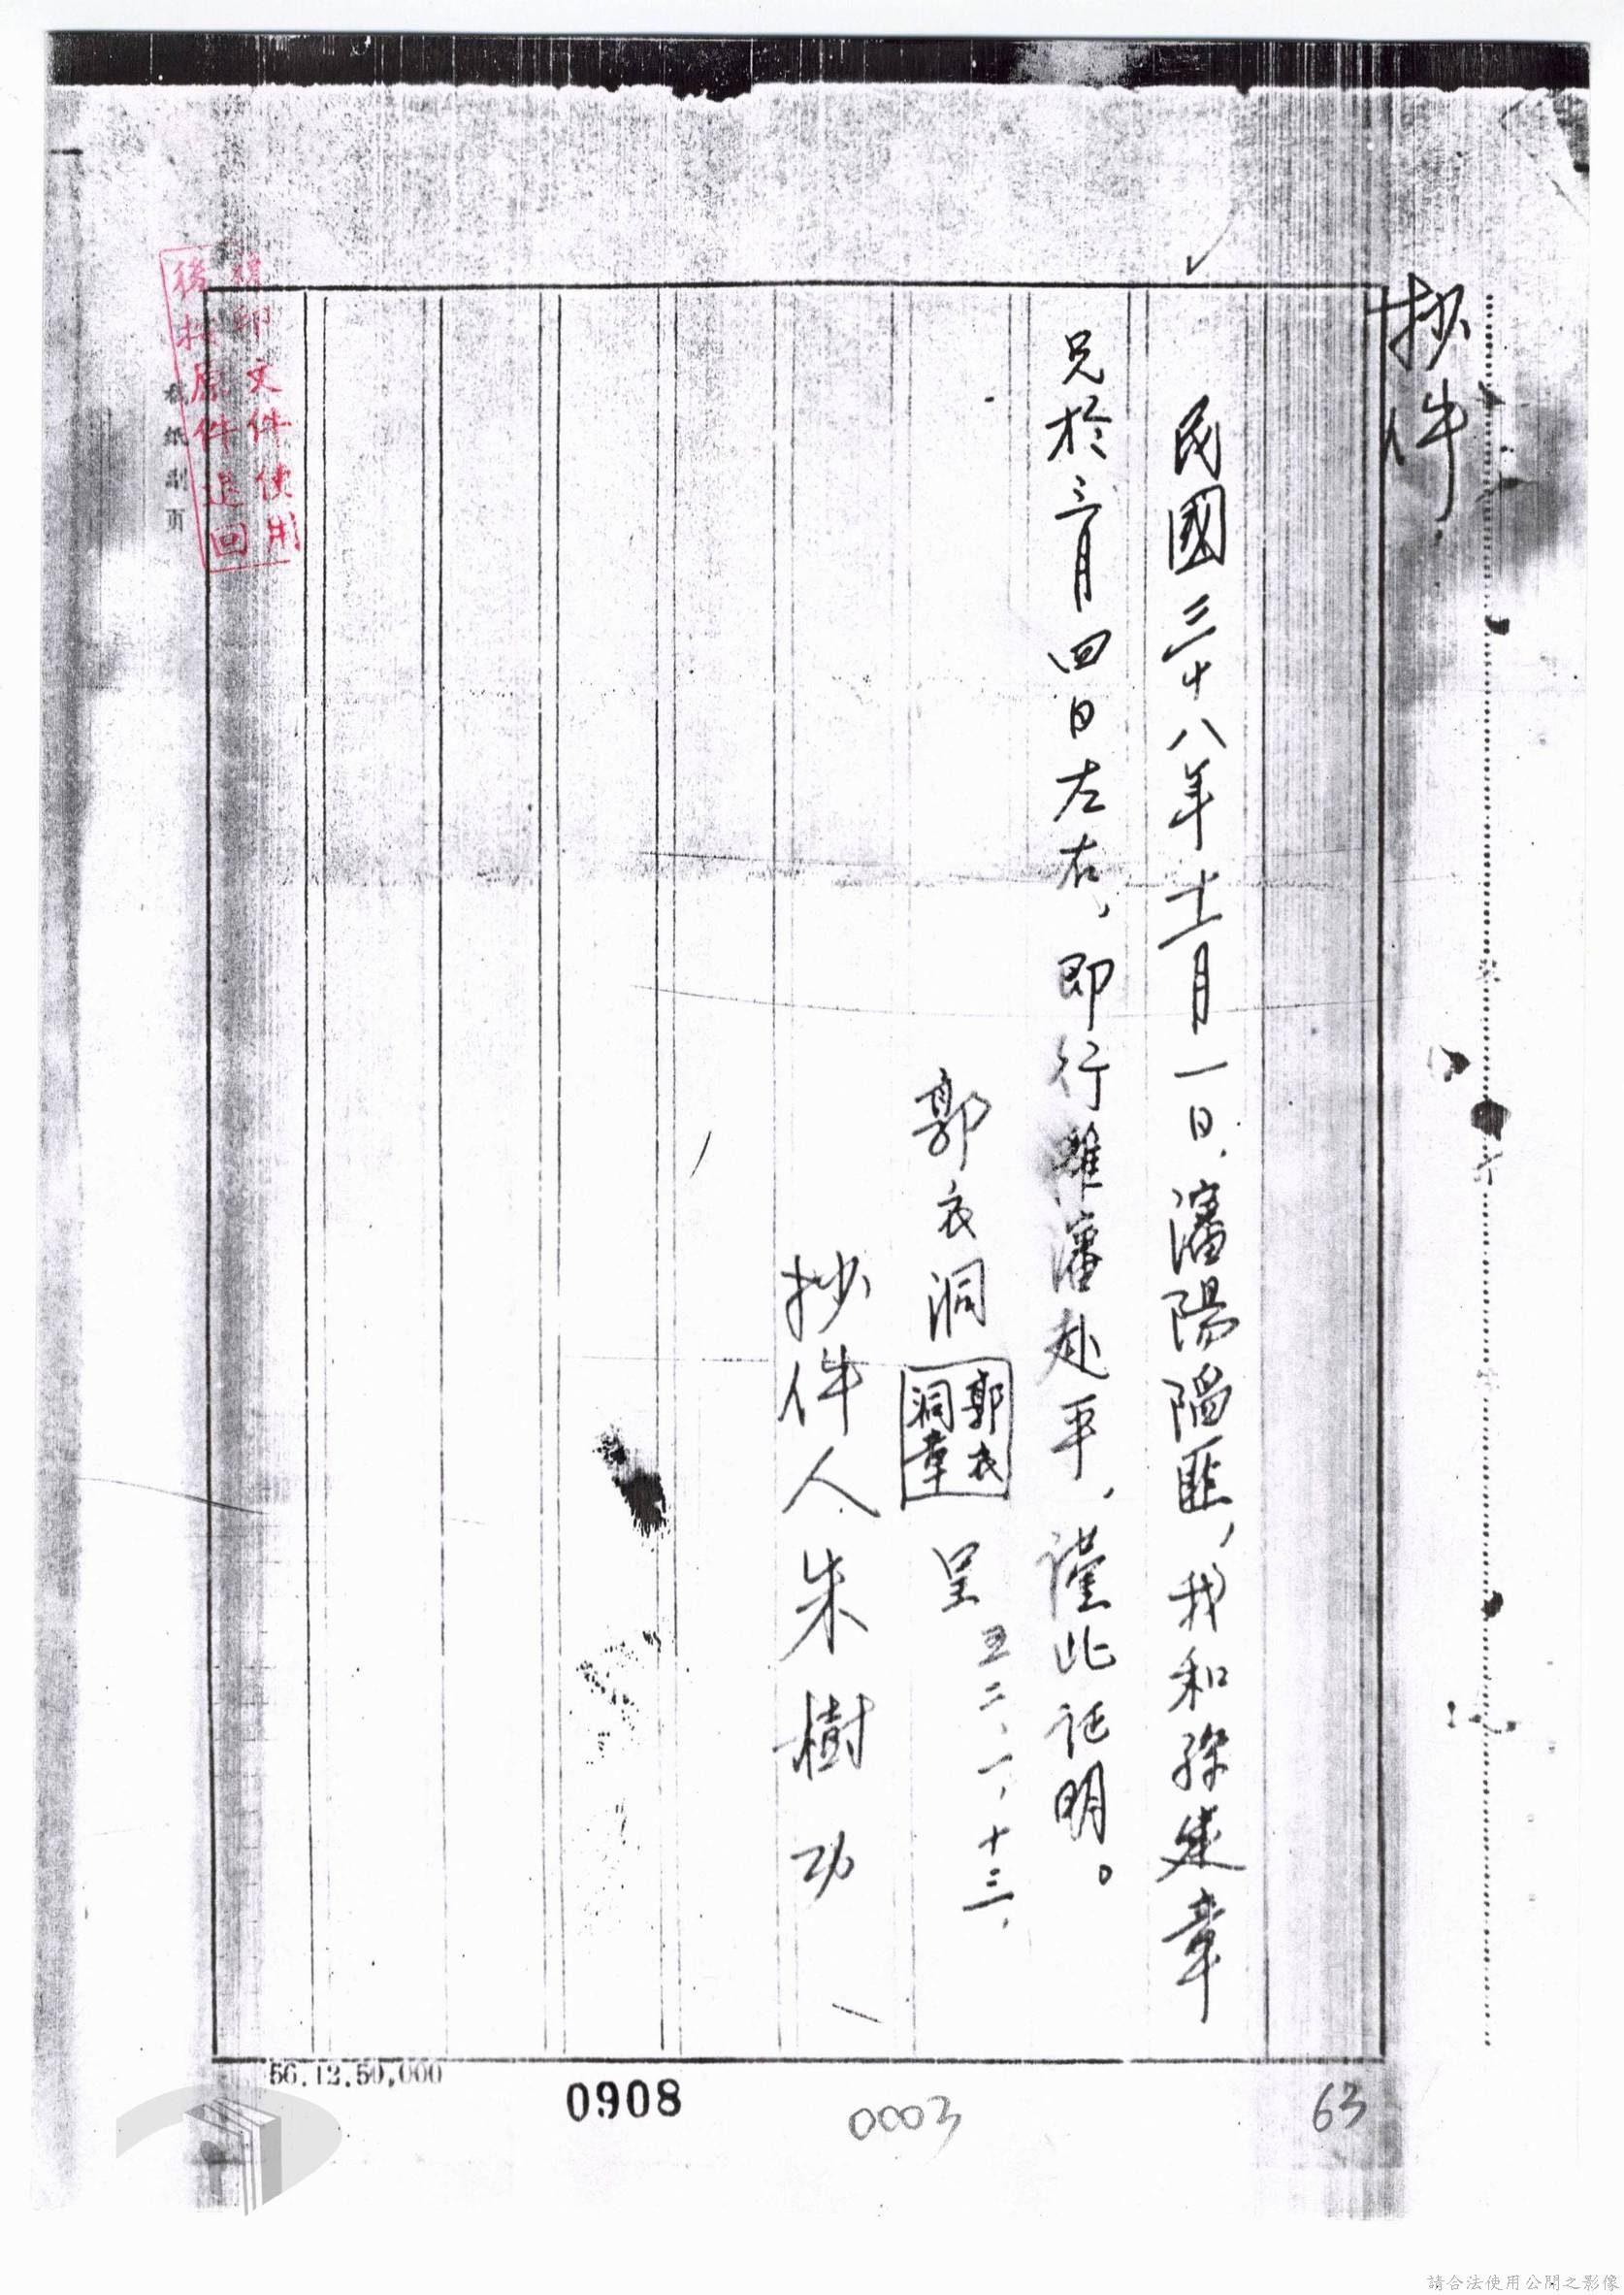 抄件
民國三十八年十一月一日、瀋陽陷匪，我和孫建章
兄於三月四日左右、即行離瀋赴平、謹此証明。
郭衣洞
郭衣
洞章
呈 五二、一、十三、
抄件人朱樹功
文件使用
後按原件退回
紙副頁
56.12.50,000
0908
0003
63
請合法使用公開之影像